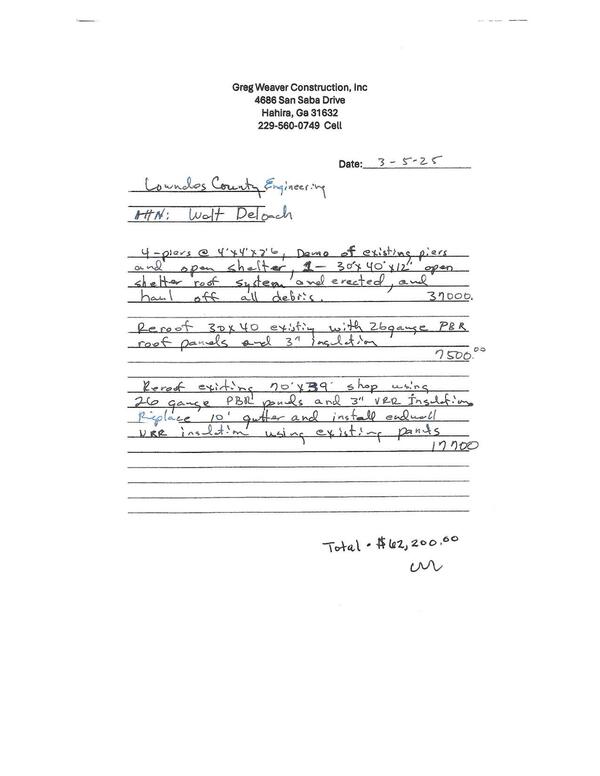 Greg Weaver Construction, Inc
4686 San Saba Drive
Hahira, Ga 31632
229-560-0749 Cell
Date: 3-5-25
Lowndes County Engineering
Attn: Walt Deloach
4-piers @ 4'x4'x2'6, Demo of existing piers
and open shelter, 1- 30'x40'x12' open
shelter roof system and erected, and
haul off all debris. 37000.
Reroof 30x40 existing with 26gauge PBR
roof panels and 3" insulation
7500.00
Reroof existing 70'x39' shop using
26 gauge PBR panels and 3" VRR Insulation
Replace 10' gutter and install endwall
VRR insulation using existing panels
17700
Total - $62,200.00